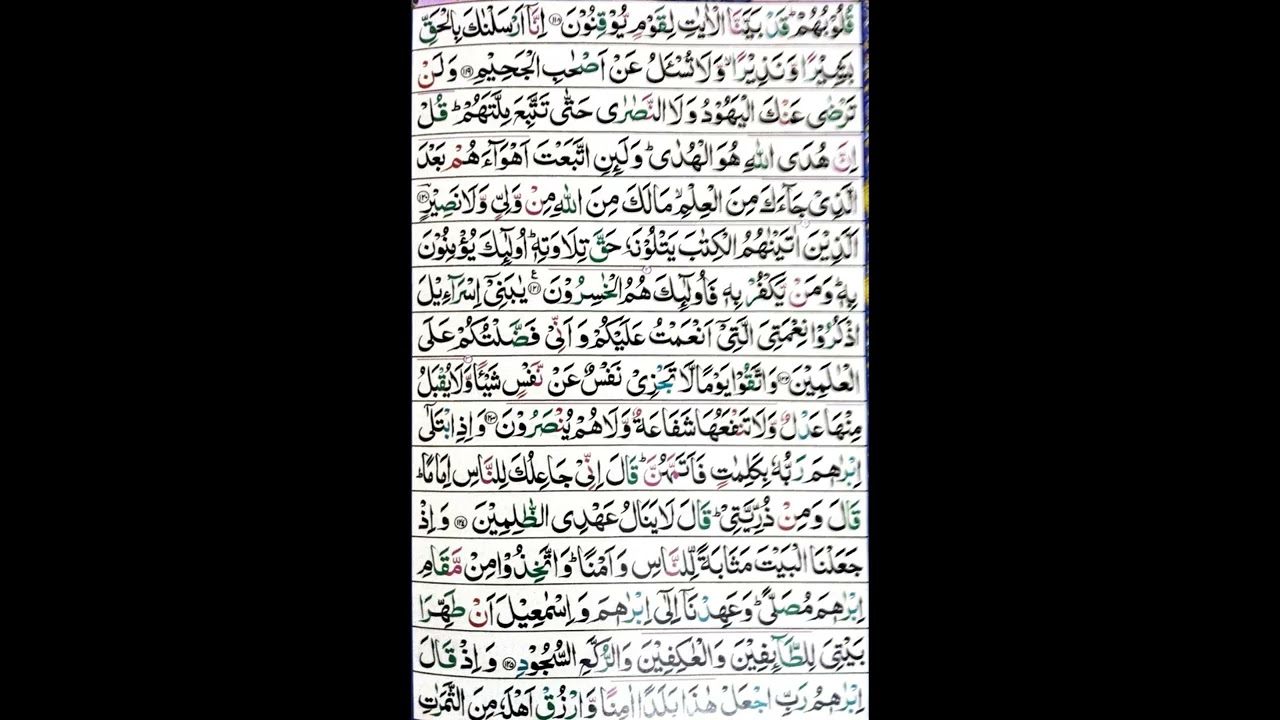 قُلُوْبُهُمْ ؕ قَدْ بَيَّنَّا الْاٰيٰتِ لِقَوْمٍ يُّوْقِنُوْنَ ﴿۱۱۸﴾ اِنَّاۤ اَرْسَلْنٰكَ بِالْحَقِّ
بَشِيْرًا وَّنَذِيْرًا ۙ وَّلَا تُسْـَٔلُ عَنْ اَصْحٰبِ الْجَحِيْمِ ﴿۱۱۹﴾ وَلَنْ
تَرْضٰى عَنْكَ الْيَهُوْدُ وَلَا النَّصٰرٰى حَتّٰى تَتَّبِعَ مِلَّتَهُمْ ؕ قُلْ
اِنَّ هُدَى اللّٰهِ هُوَ الْهُدٰى ؕ وَلَئِنِ اتَّبَعْتَ اَهْوَآءَهُمْ بَعْدَ
الَّذِيْ جَآءَكَ مِنَ الْعِلْمِ ۙ مَا لَكَ مِنَ اللّٰهِ مِنْ وَّلِيٍّ وَّلَا نَصِيْرٍ ﴿۱۲۰﴾
اَلَّذِيْنَ اٰتَيْنٰهُمُ الْكِتٰبَ يَتْلُوْنَهٗ حَقَّ تِلَاوَتِهٖ ؕ اُولٰٓئِكَ يُؤْمِنُوْنَ
بِهٖ ؕ وَمَنْ يَّكْفُرْ بِهٖ فَاُولٰٓئِكَ هُمُ الْخٰسِرُوْنَ ﴿۱۲۱﴾ ع يٰبَنِيْۤ اِسْرَآءِيْلَ
اذْكُرُوْا نِعْمَتِيَ الَّتِيْۤ اَنْعَمْتُ عَلَيْكُمْ وَاَنِّيْ فَضَّلْتُكُمْ عَلَى
الْعٰلَمِيْنَ ﴿۱۲۲﴾ وَاتَّقُوْا يَوْمًا لَّا تَجْزِيْ نَفْسٌ عَنْ نَّفْسٍ شَيْـًٔا وَّلَا يُقْبَلُ
مِنْهَا عَدْلٌ وَّلَا تَنْفَعُهَا شَفَاعَةٌ وَّلَا هُمْ يُنْصَرُوْنَ ﴿۱۲۳﴾ وَاِذِ ابْتَلٰۤى
اِبْرٰهٖمَ رَبُّهٗ بِكَلِمٰتٍ فَاَتَمَّهُنَّ ؕ قَالَ اِنِّيْ جَاعِلُكَ لِلنَّاسِ اِمَامًا ؕ
قَالَ وَمِنْ ذُرِّيَّتِيْ ؕ قَالَ لَا يَنَالُ عَهْدِي الظّٰلِمِيْنَ ﴿۱۲۴﴾ وَاِذْ
جَعَلْنَا الْبَيْتَ مَثَابَةً لِّلنَّاسِ وَاَمْنًا ؕ وَاتَّخِذُوْا مِنْ مَّقَامِ
اِبْرٰهٖمَ مُصَلًّى ؕ وَعَهِدْنَاۤ اِلٰۤى اِبْرٰهٖمَ وَاِسْمٰعِيْلَ اَنْ طَهِّرَا
بَيْتِيَ لِلطَّآئِفِيْنَ وَالْعٰكِفِيْنَ وَالرُّكَّعِ السُّجُوْدِ ﴿۱۲۵﴾ وَاِذْ قَالَ
اِبْرٰهٖمُ رَبِّ اجْعَلْ هٰذَا بَلَدًا اٰمِنًا وَّارْزُقْ اَهْلَهٗ مِنَ الثَّمَرٰتِ